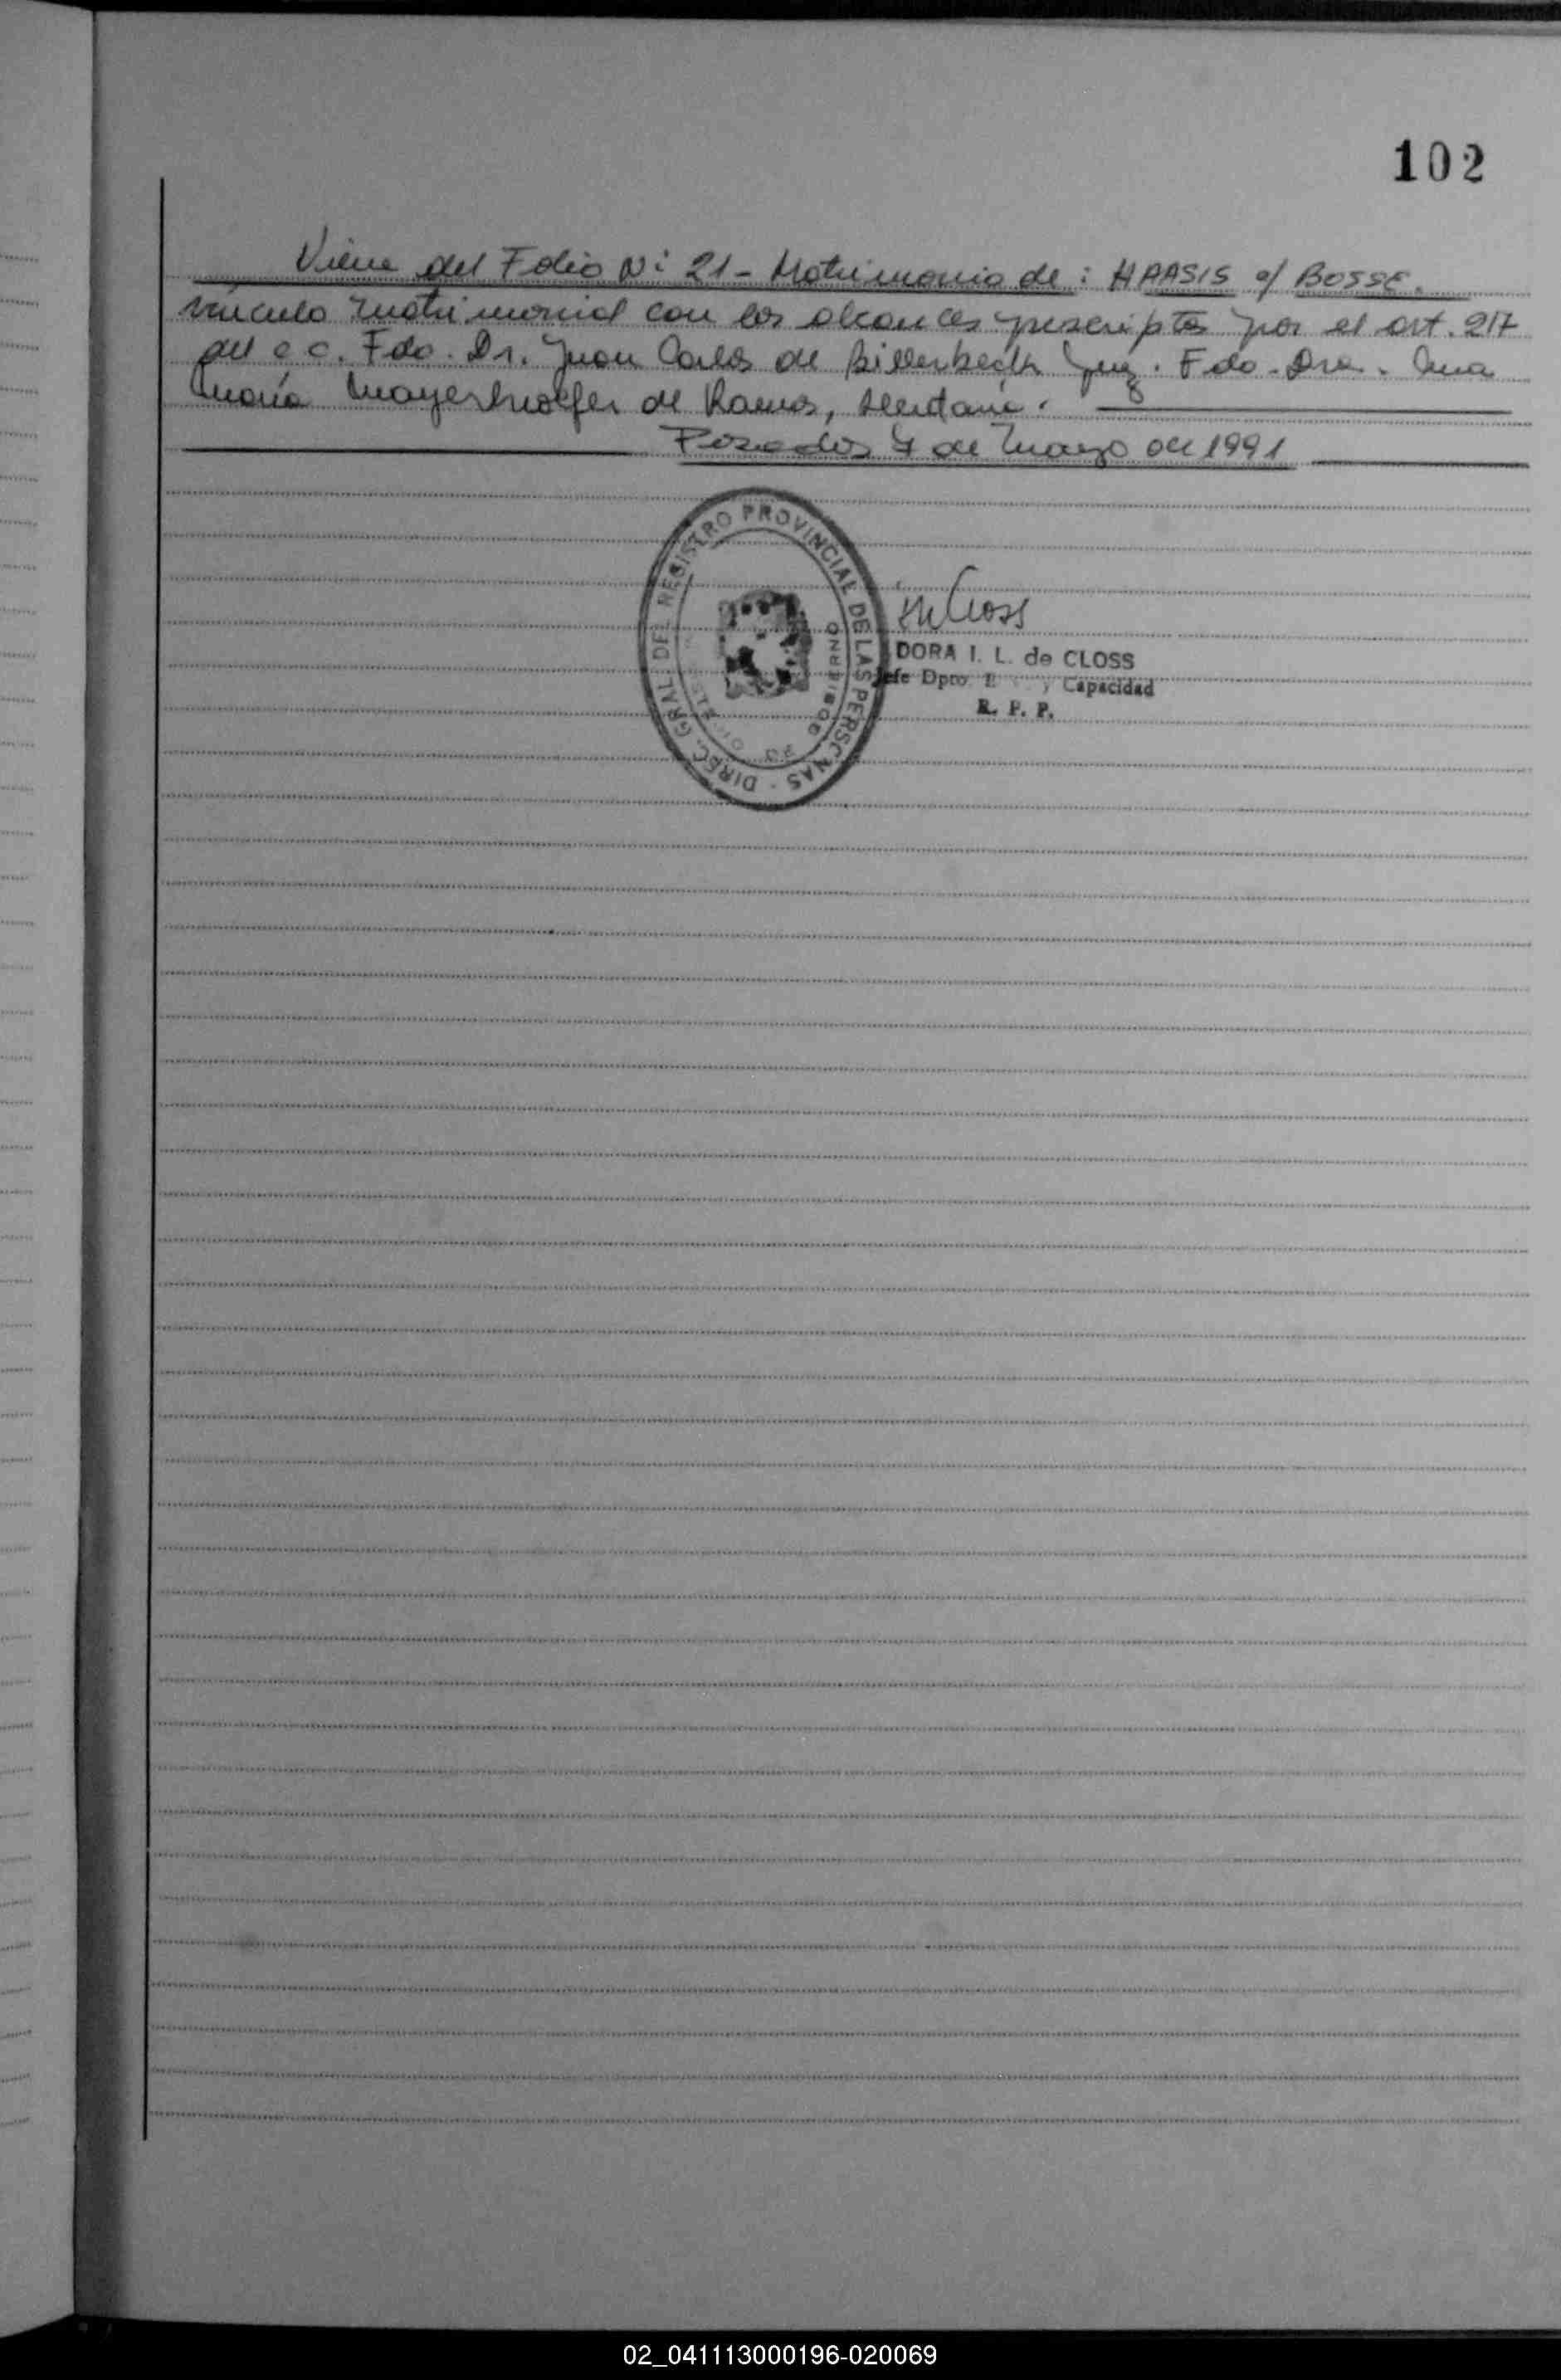 102
Viene del Folio Nº 21 - Matrimonio de: HAASIS c/ BOSSE.
vínculo matrimonial con los alcances prescriptos por el art. 217
del c c. Fdo. Dr. Juan Carlos de Billerbeck Juez. Fdo. Dra. Ana
María Mayerhoffer de Ramos, secretaria.
Posadas 7 de Marzo de 1991
DIREC. GRAL. DEL REGISTRO PROVINCIAL DE LAS PERSONAS
GOBIERNO
DORA I. L. de CLOSS
Jefe Dpto. y Capacidad
R. P. P.
02_041113000196-020069